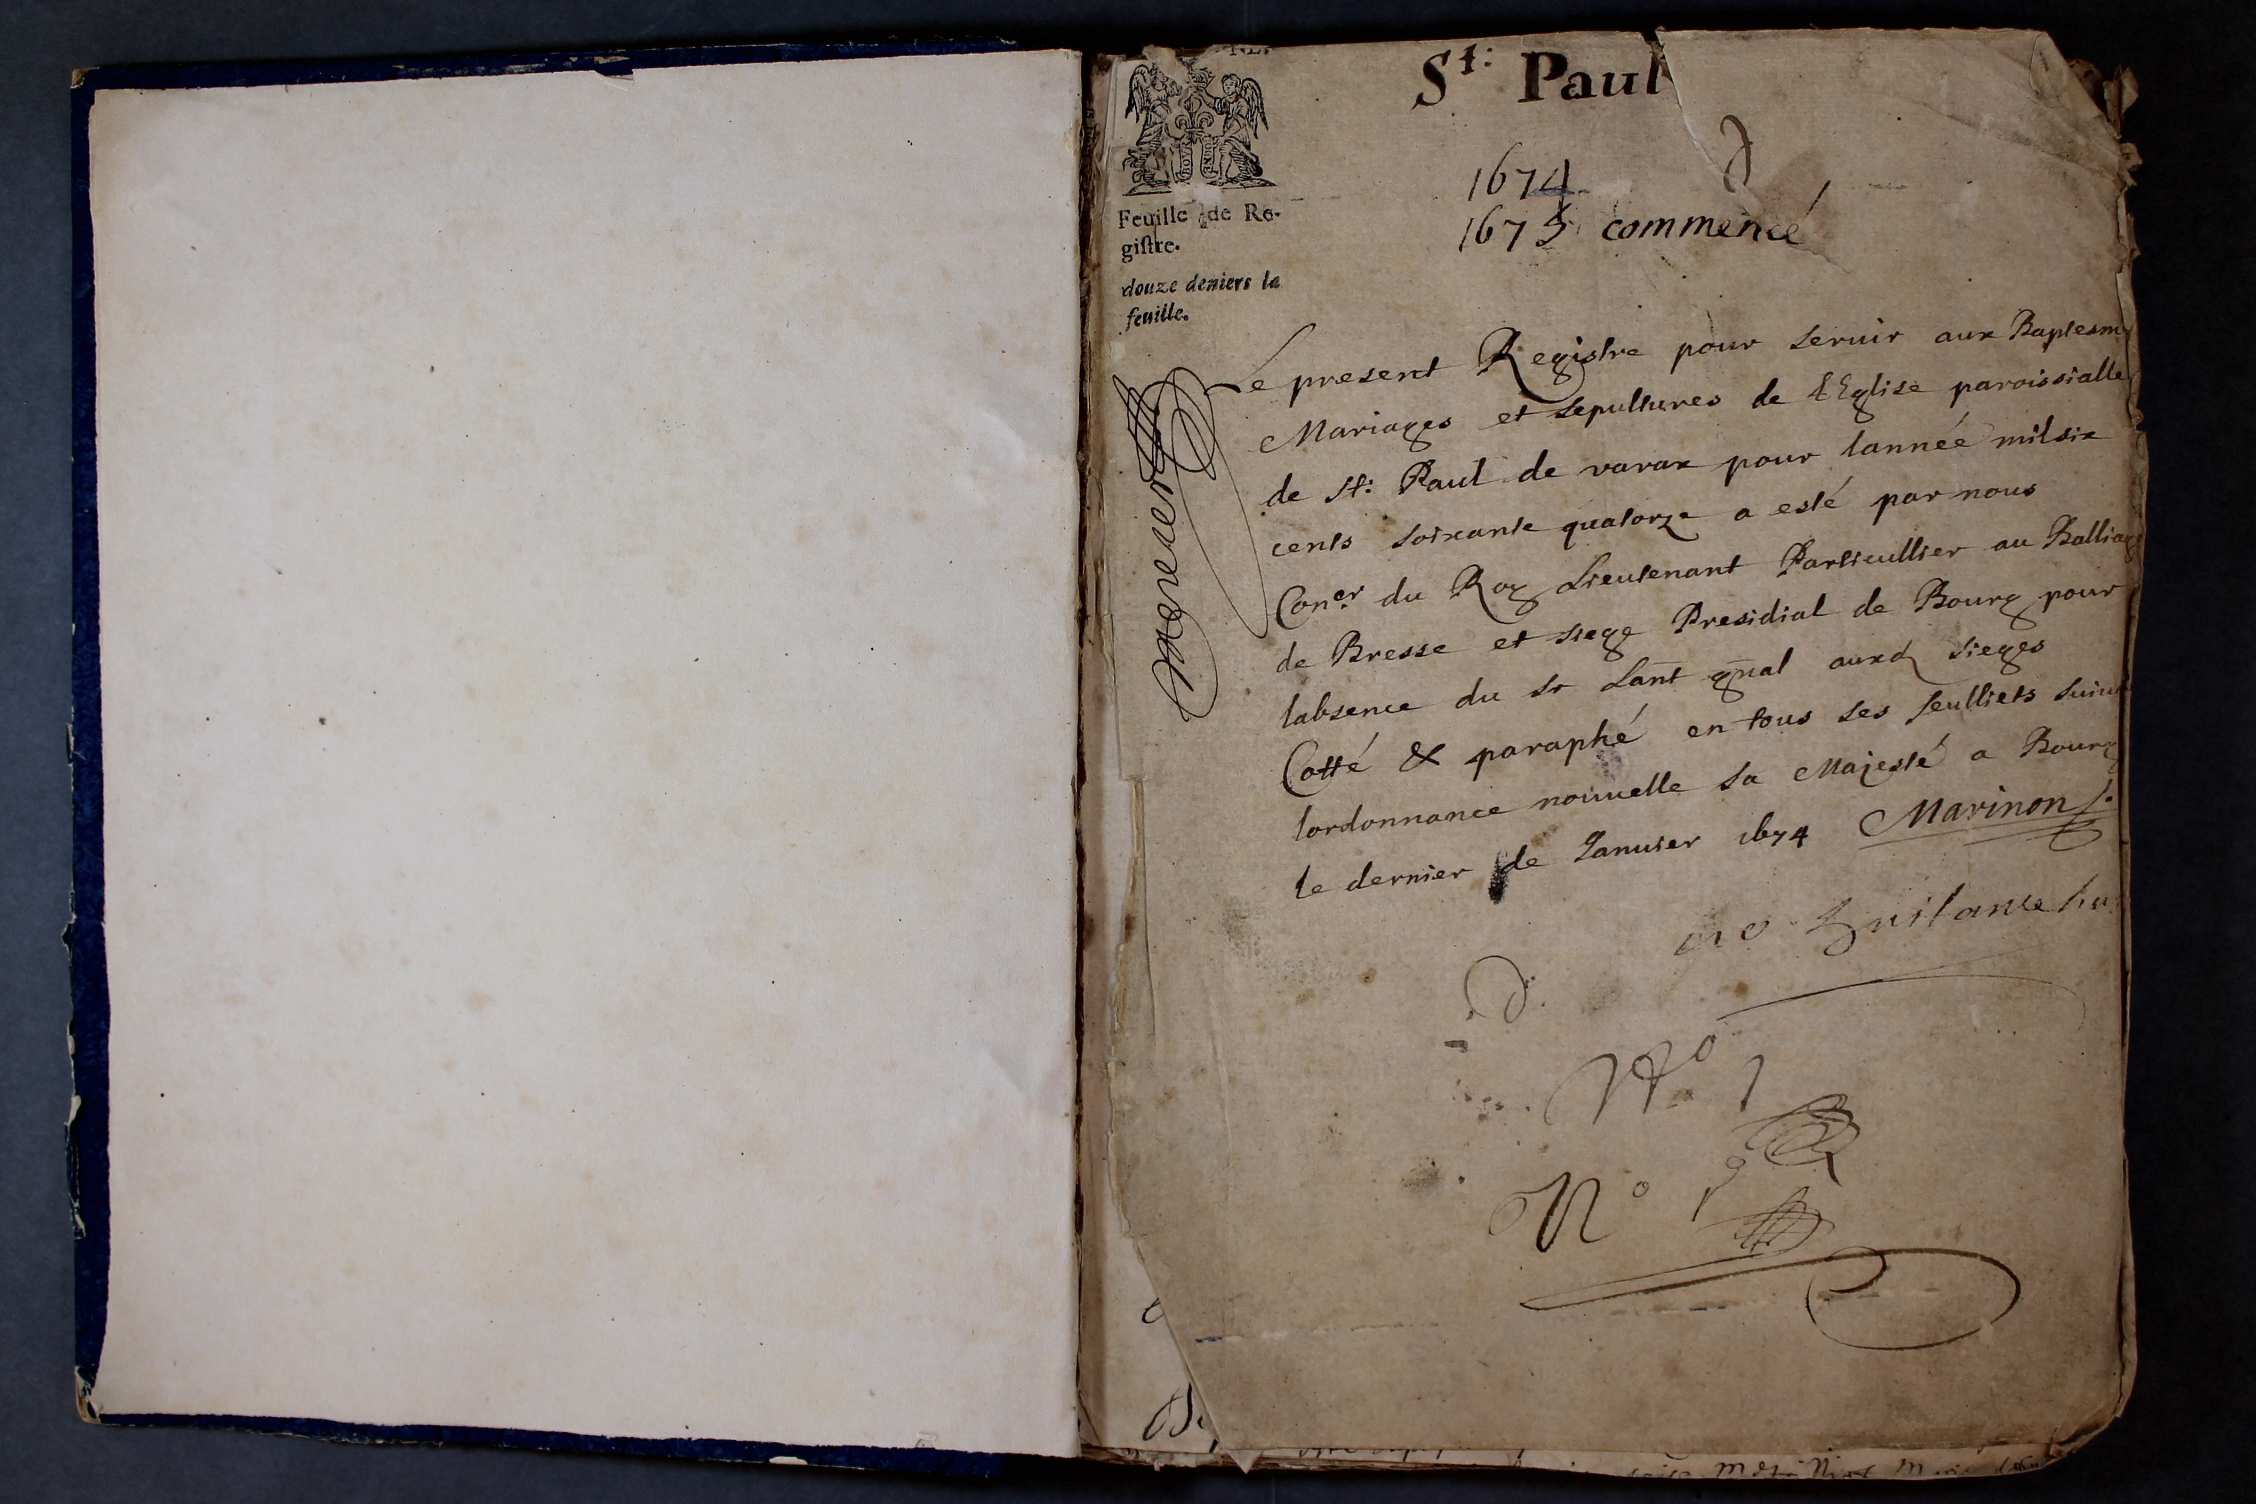 St: Paul
1674
1675 commencé
Feuille de Re-
gistre.
douze deniers la
feuille.
Le present Registre pour seruir aux Baptesm
Mariages et sepultures de L'Eglise paroissialle
de St: Paul de varax pour lannée milsix
cents soixante quatorze a esté par nous
Coner. du Roy Lieutenant Particullier au Balliage
de Bresse et siege Presidial de Bourg pour
labsence du sr Lant gnal auxd sieges
Cotté & paraphé en tous ses feulliets suiu
lordonnance nouuelle sa Majesté a Bourg
le dernier de Januier 1674 Marinon
No 1
No 1